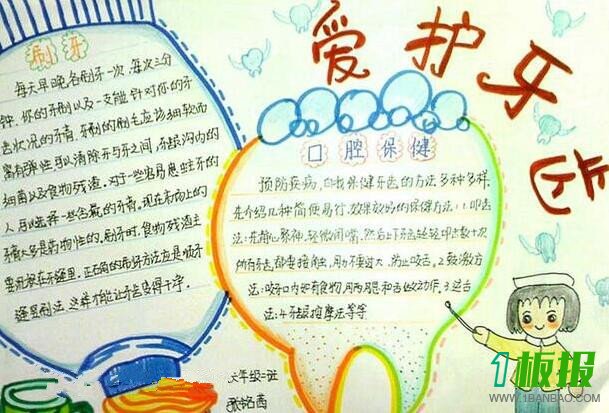 爱护牙齿
刷牙
每天早晚各刷牙一次，每次三分
钟，你的牙刷以及一支能针对你的牙
齿状况的牙膏，牙刷的刷毛应该细软而
富有弹性可以清除牙与牙之间，牙龈沟内的
细菌以及食物残渣。对于一些容易患蛀牙的
人可以选择一些含氟的牙膏，现在市场上的
牙膏大多是药物性的。刷牙时，食物残渣主
要就积在牙缝里，正确的刷牙方法应是顺牙
缝里刷法，这样才能让牙齿变得干净。
口腔保健
预防疾病，自我保健牙齿的方法多种多样
先介绍几种简便易行，效果较好的保健方法：1.叩齿
法：先静心聚神，轻微闭嘴，然后上下牙齿轻轻叩击数十次
所有牙齿都要接触，用力不要过大，防止咬舌。2.鼓漱方
法：咬牙口内如有食物，用两腮和舌做动作。3.运舌
法：4.牙龈按摩法等等
六年级一班
1板报
WWW.1BANBAO.COM